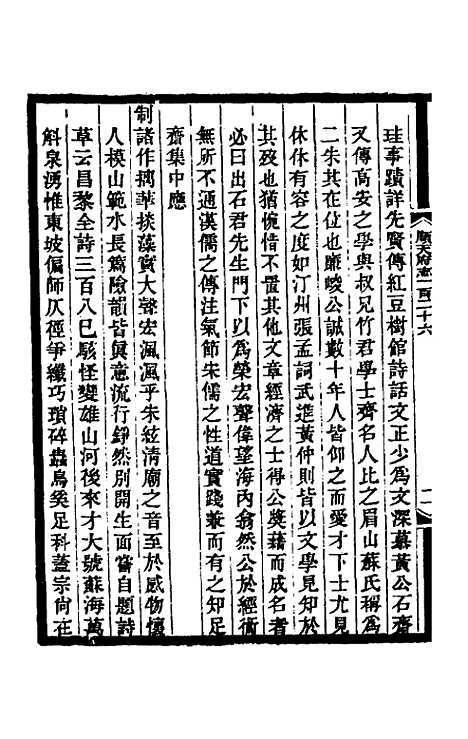 珪事蹟詳先賢傳紅豆樹館詩話文正少爲文深慕黃公石齋
又傳高安之學與叔兄竹君學士齊名人比之眉山蘇氏稱爲
二朱其在位也廉峻公誠數十年人皆仰之而愛才下士尤見
休休有容之度如汀州張孟詞武進黃仲則皆以文學見知於
其歿也猶惋惜不置其他文章經濟之士得公奬藉而成名者
必曰出石君先生門下以爲榮宏聲偉望海內翕然公於經術
無所不通漢儒之傳注氣節宋儒之性道實踐兼而有之知足
齋集中應
制諸作摛華掞藻實大聲宏渢渢乎朱絃清廟之音至於感物懷
人模山範水長篇險韻皆眞意流行錚然別開生面嘗自題詩
草云昌黎全詩三百八已駭怪變雄山河後來才大號蘇海萬
斛泉湧惟東坡偏師仄徑爭纖巧瑣碎蟲鳥奚足科蓋宗尙在
順天府志一百二十六
二